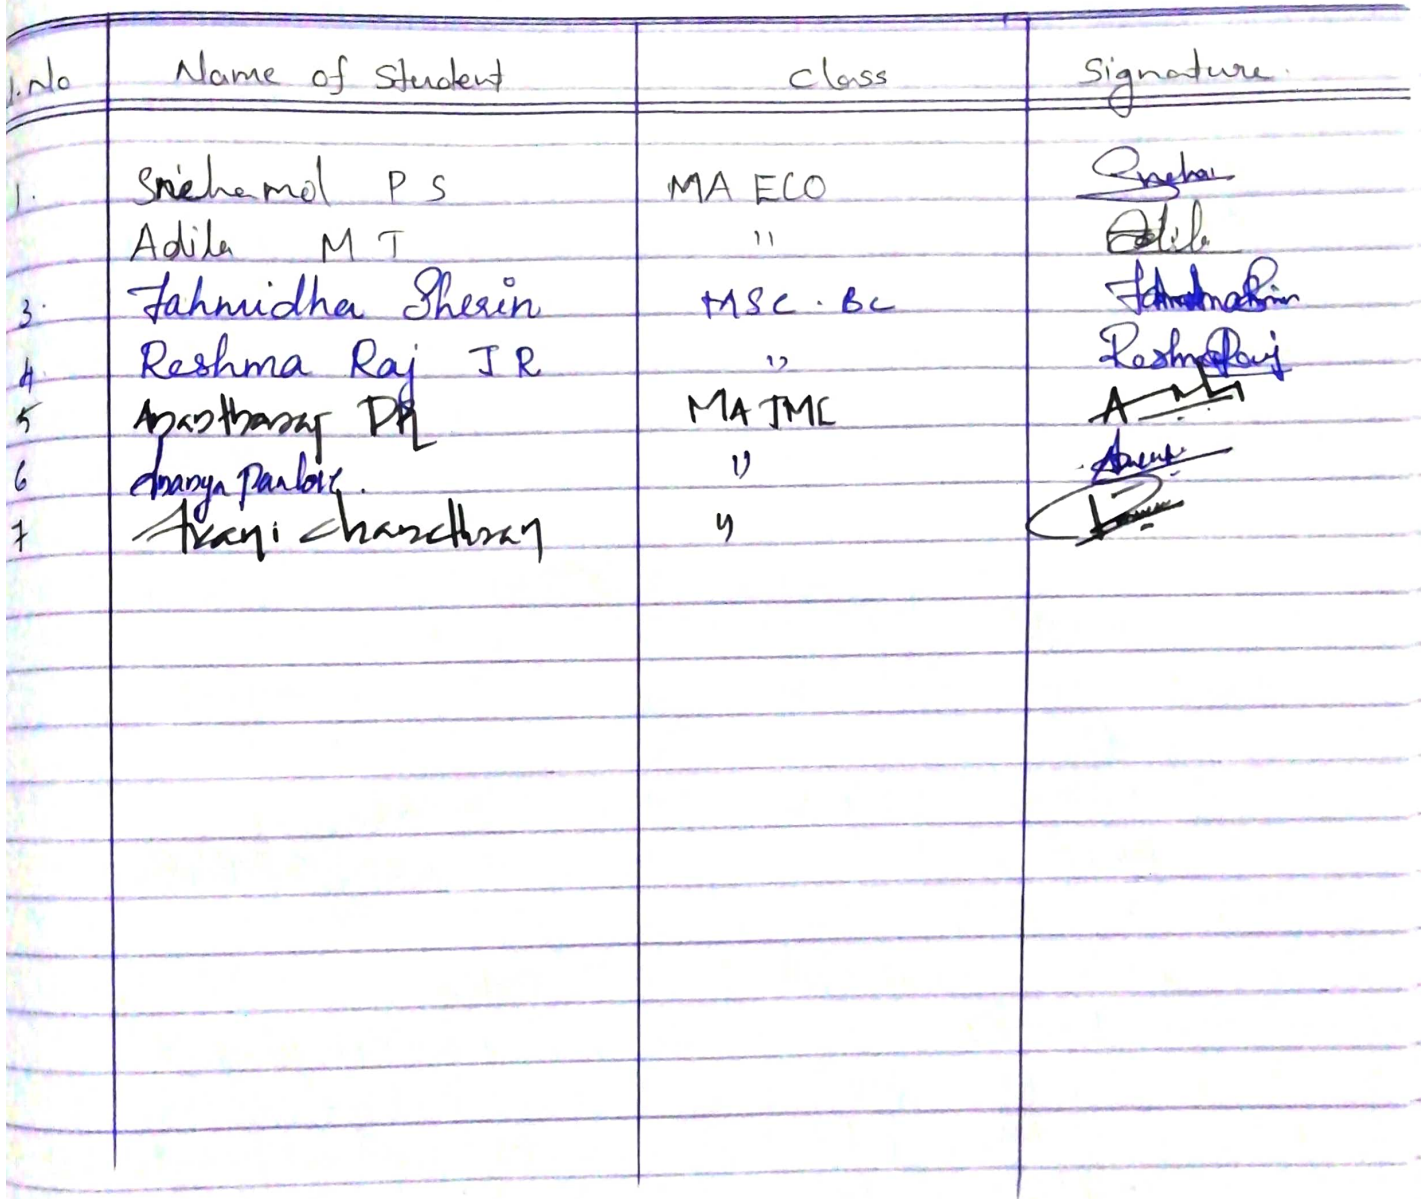 No Name of Student Class Signature.
1. Snehamol P S MA ECO Sneha
Adila M T " Adila
3. Fahmidha Sherin MSC. BC
4 Reshma Raj J R " Reshma Raj
5 Anantharaj DR MA JMC
6 Ananya "
7 Chandhran "